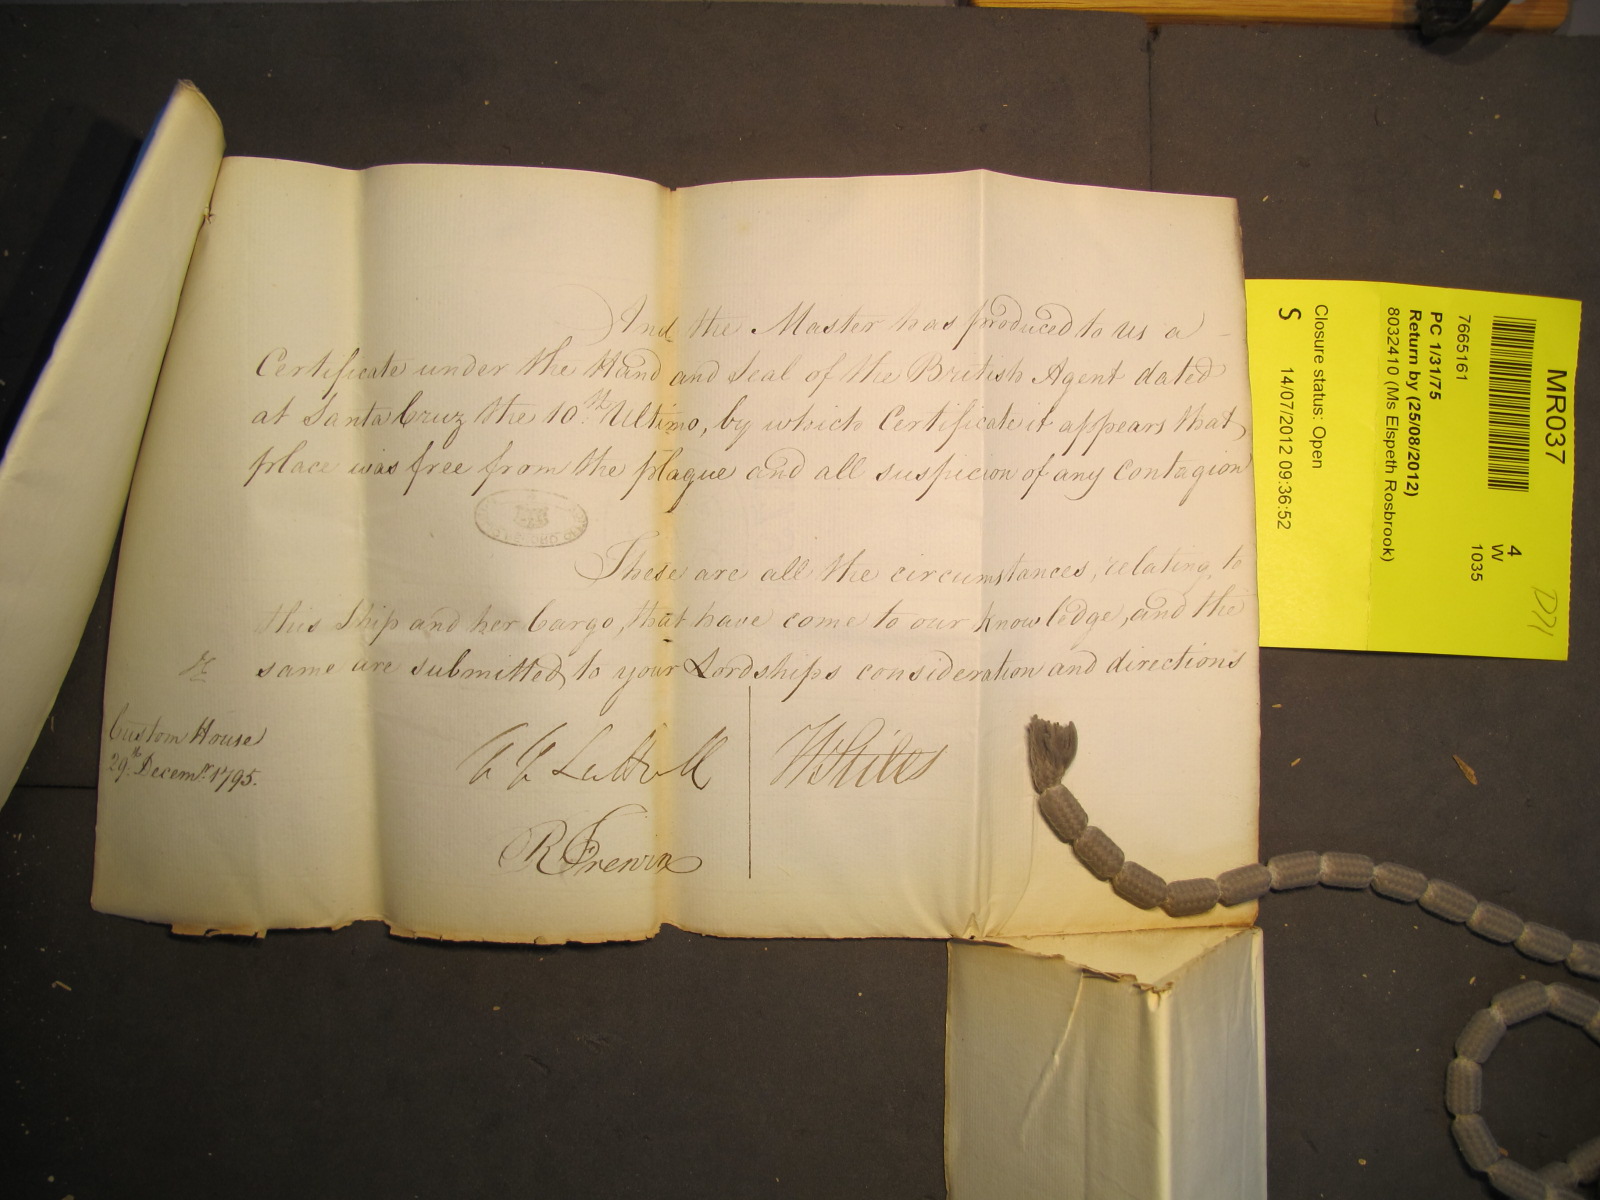 And the Master has produced to us a
Certificate under the Hand and Seal of the British Agent dated
at Santa Cruz the 10th Ultimo, by which Certificate it appears that
place was free from the plague and all suspicion of any Contagion
These are all the circumstances, relating to
this Ship and her Cargo, that have come to our knowledge, and the
same are submitted to your Lordships consideration and directions
Custom House
29th Decemr 1795.
W Stiles
R Frewin
MR037
4
W
1035
7665161
PC 1/31/75
Return by (25/08/2012)
8032410 (Ms Elspeth Rosbrook)
Closure status: Open
S 14/07/2012 09:36:52